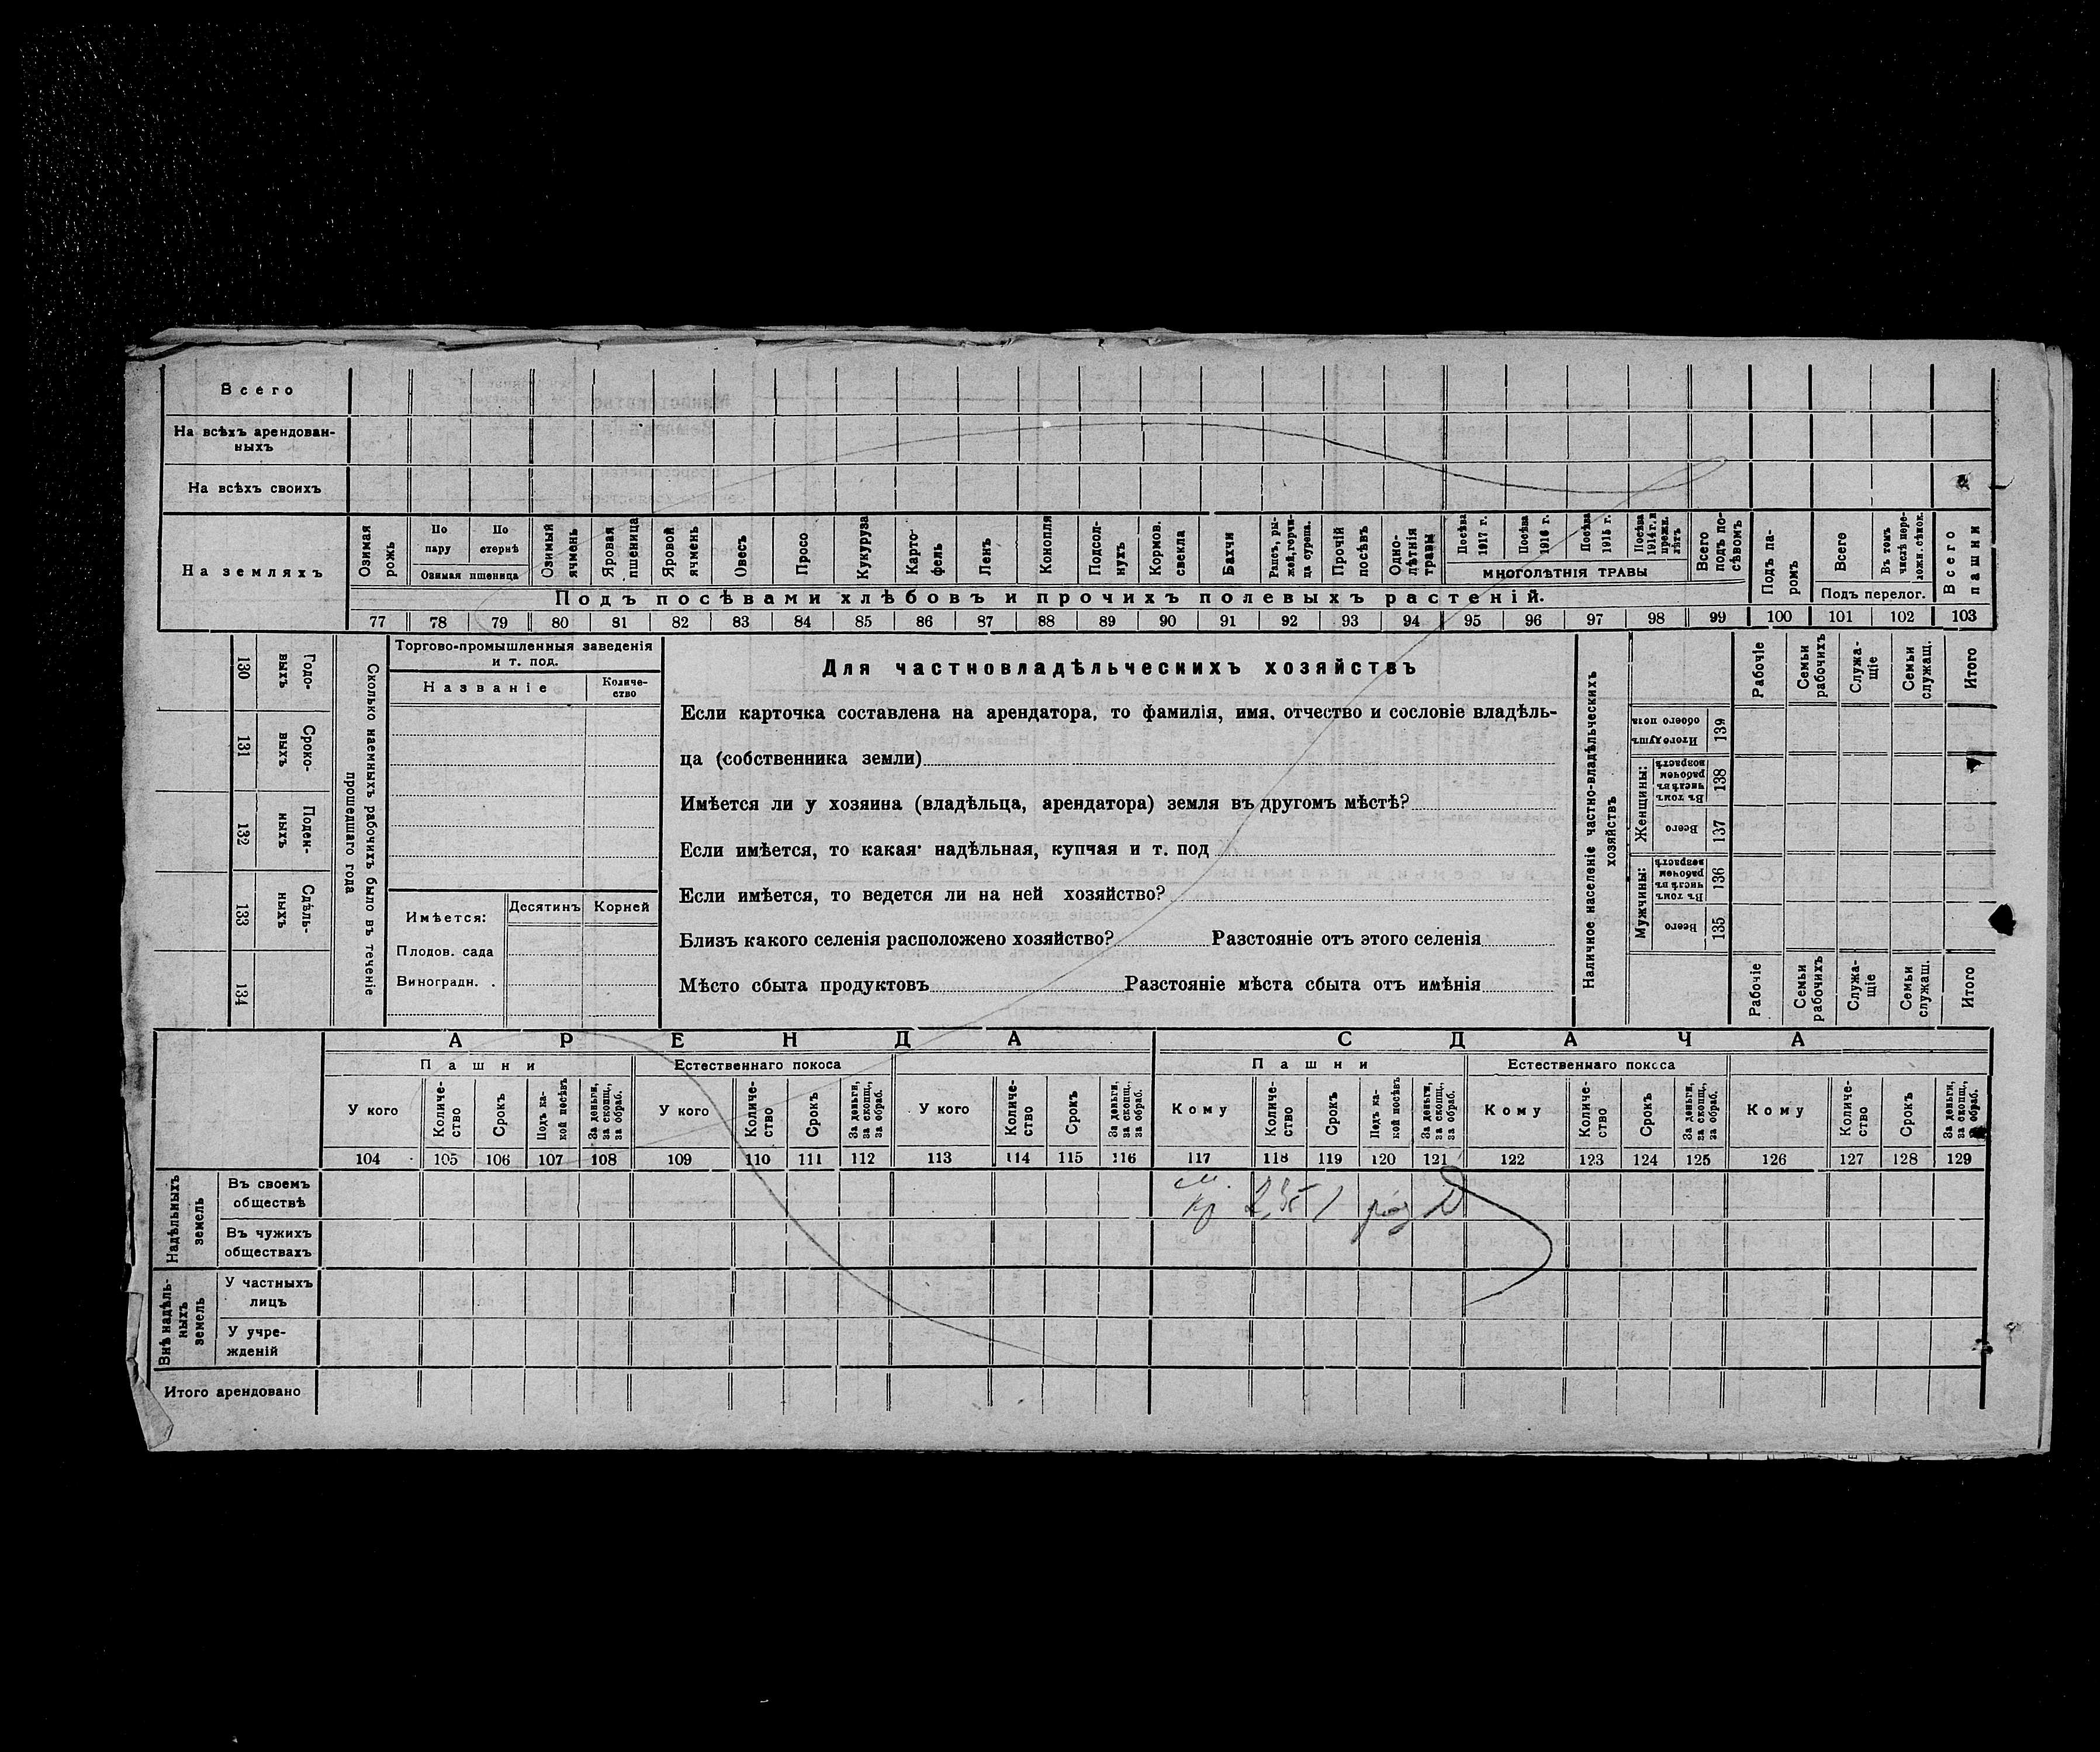 Всего
На всѣхъ арендован-
ныхъ
На всѣхъ своихъ
На земляхъ
Озимая рожь
По пару
По стернѣ
Озимая пшеница
Озимый ячмень
Яровая пшеница
Яровой ячмень
Овесъ
Просо
Кукуруза
Карто-
фель
Ленъ
Конопля
Подсол-
нухъ
Кормов. свекла
Бахчи
Рапсъ, ры-
жей, горчи-
ца сурепа.
Прочій посѣвъ
Одно-
лѣтнія травы
Посѣва 1917 г.
Посѣва 1916 г.
Посѣва 1915 г.
Посѣва 1914 г. и прежн. лѣтъ
МНОГОЛѢТНІЯ ТРАВЫ
Всего подъ по-
сѣвомъ
Подъ па-
ромъ
Всего
Въ томъ числѣ пере-
ложн. сѣнок.
Подъ перелог.
Всего пашни
Подъ посѣвами хлѣбовъ и прочихъ полевыхъ растеній.
77 78 79 80 81 82 83 84 85 86 87 88 89 90 91 92 93 94 95 96 97 98 99 100 101 102 103
130 Годо-
выхъ
131 Сроко-
выхъ
132 Поден-
ныхъ
133 Сдѣль-
ныхъ
134
Сколько наемныхъ рабочихъ было въ теченіе
прошедшаго года
Торгово-промышленныя заведенія
и т. под.
Названіе
Количе-
ство
Имѣется:
Десятинъ
Корней
Плодов. сада
Виноградн. .
Для частновладѣльческихъ хозяйствъ
Если карточка составлена на арендатора, то фамилія, имя, отчество и сословіе владѣль-
ца (собственника земли)
Имѣется ли у хозяина (владѣльца, арендатора) земля въ другомъ мѣстѣ?
Если имѣется, то какая: надѣльная, купчая и т. под
Если имѣется, то ведется ли на ней хозяйство?
Близъ какого селенія расположено хозяйство? Разстояніе отъ этого селенія
Мѣсто сбыта продуктовъ Разстояніе мѣста сбыта отъ имѣнія
Наличное населеніе частно-владѣльческихъ
хозяйствъ
Рабочіе
Семьи рабочихъ
Служа-
щіе
Семьи служащ.
Итого
Итого душъ обоего пола 139
Женщины:
Въ томъ числѣ въ рабочем возрастѣ 138
Всего 137
Мужчины:
Въ томъ числѣ въ рабочем возрастѣ 136
Всего 135
Рабочіе
Семьи рабочихъ
Служа-
щіе
Семьи служащ.
Итого
АРЕНДА
СДАЧА
Пашни
Естественнаго покоса
Пашни
Естественнаго покоса
У кого
Количе-
ство
Срокъ
Подъ ка-
кой посѣвъ
За деньги, за скопщ., за обраб.
У кого
Количе-
ство
Срокъ
За деньги, за скопщ., за обраб.
У кого
Количе-
ство
Срокъ
За деньги, за скопщ., за обраб.
Кому
Количе-
ство
Срокъ
Подъ ка-
кой посѣвъ
За деньги, за скопщ., за обраб.
Кому
Количе-
ство
Срокъ
За деньги, за скопщ., за обраб.
Кому
Количе-
ство
Срокъ
За деньги, за скопщ., за обраб.
104 105 106 107 108 109 110 111 112 113 114 115 116 117 118 119 120 121 122 123 124 125 126 127 128 129
Надѣльныхъ земель
Въ своемъ
обществѣ
Кр 2,35 1
Въ чужихъ
обществахъ
Внѣ надѣль-
ныхъ земель
У частныхъ
лицъ
У учре-
жденій
Итого арендовано